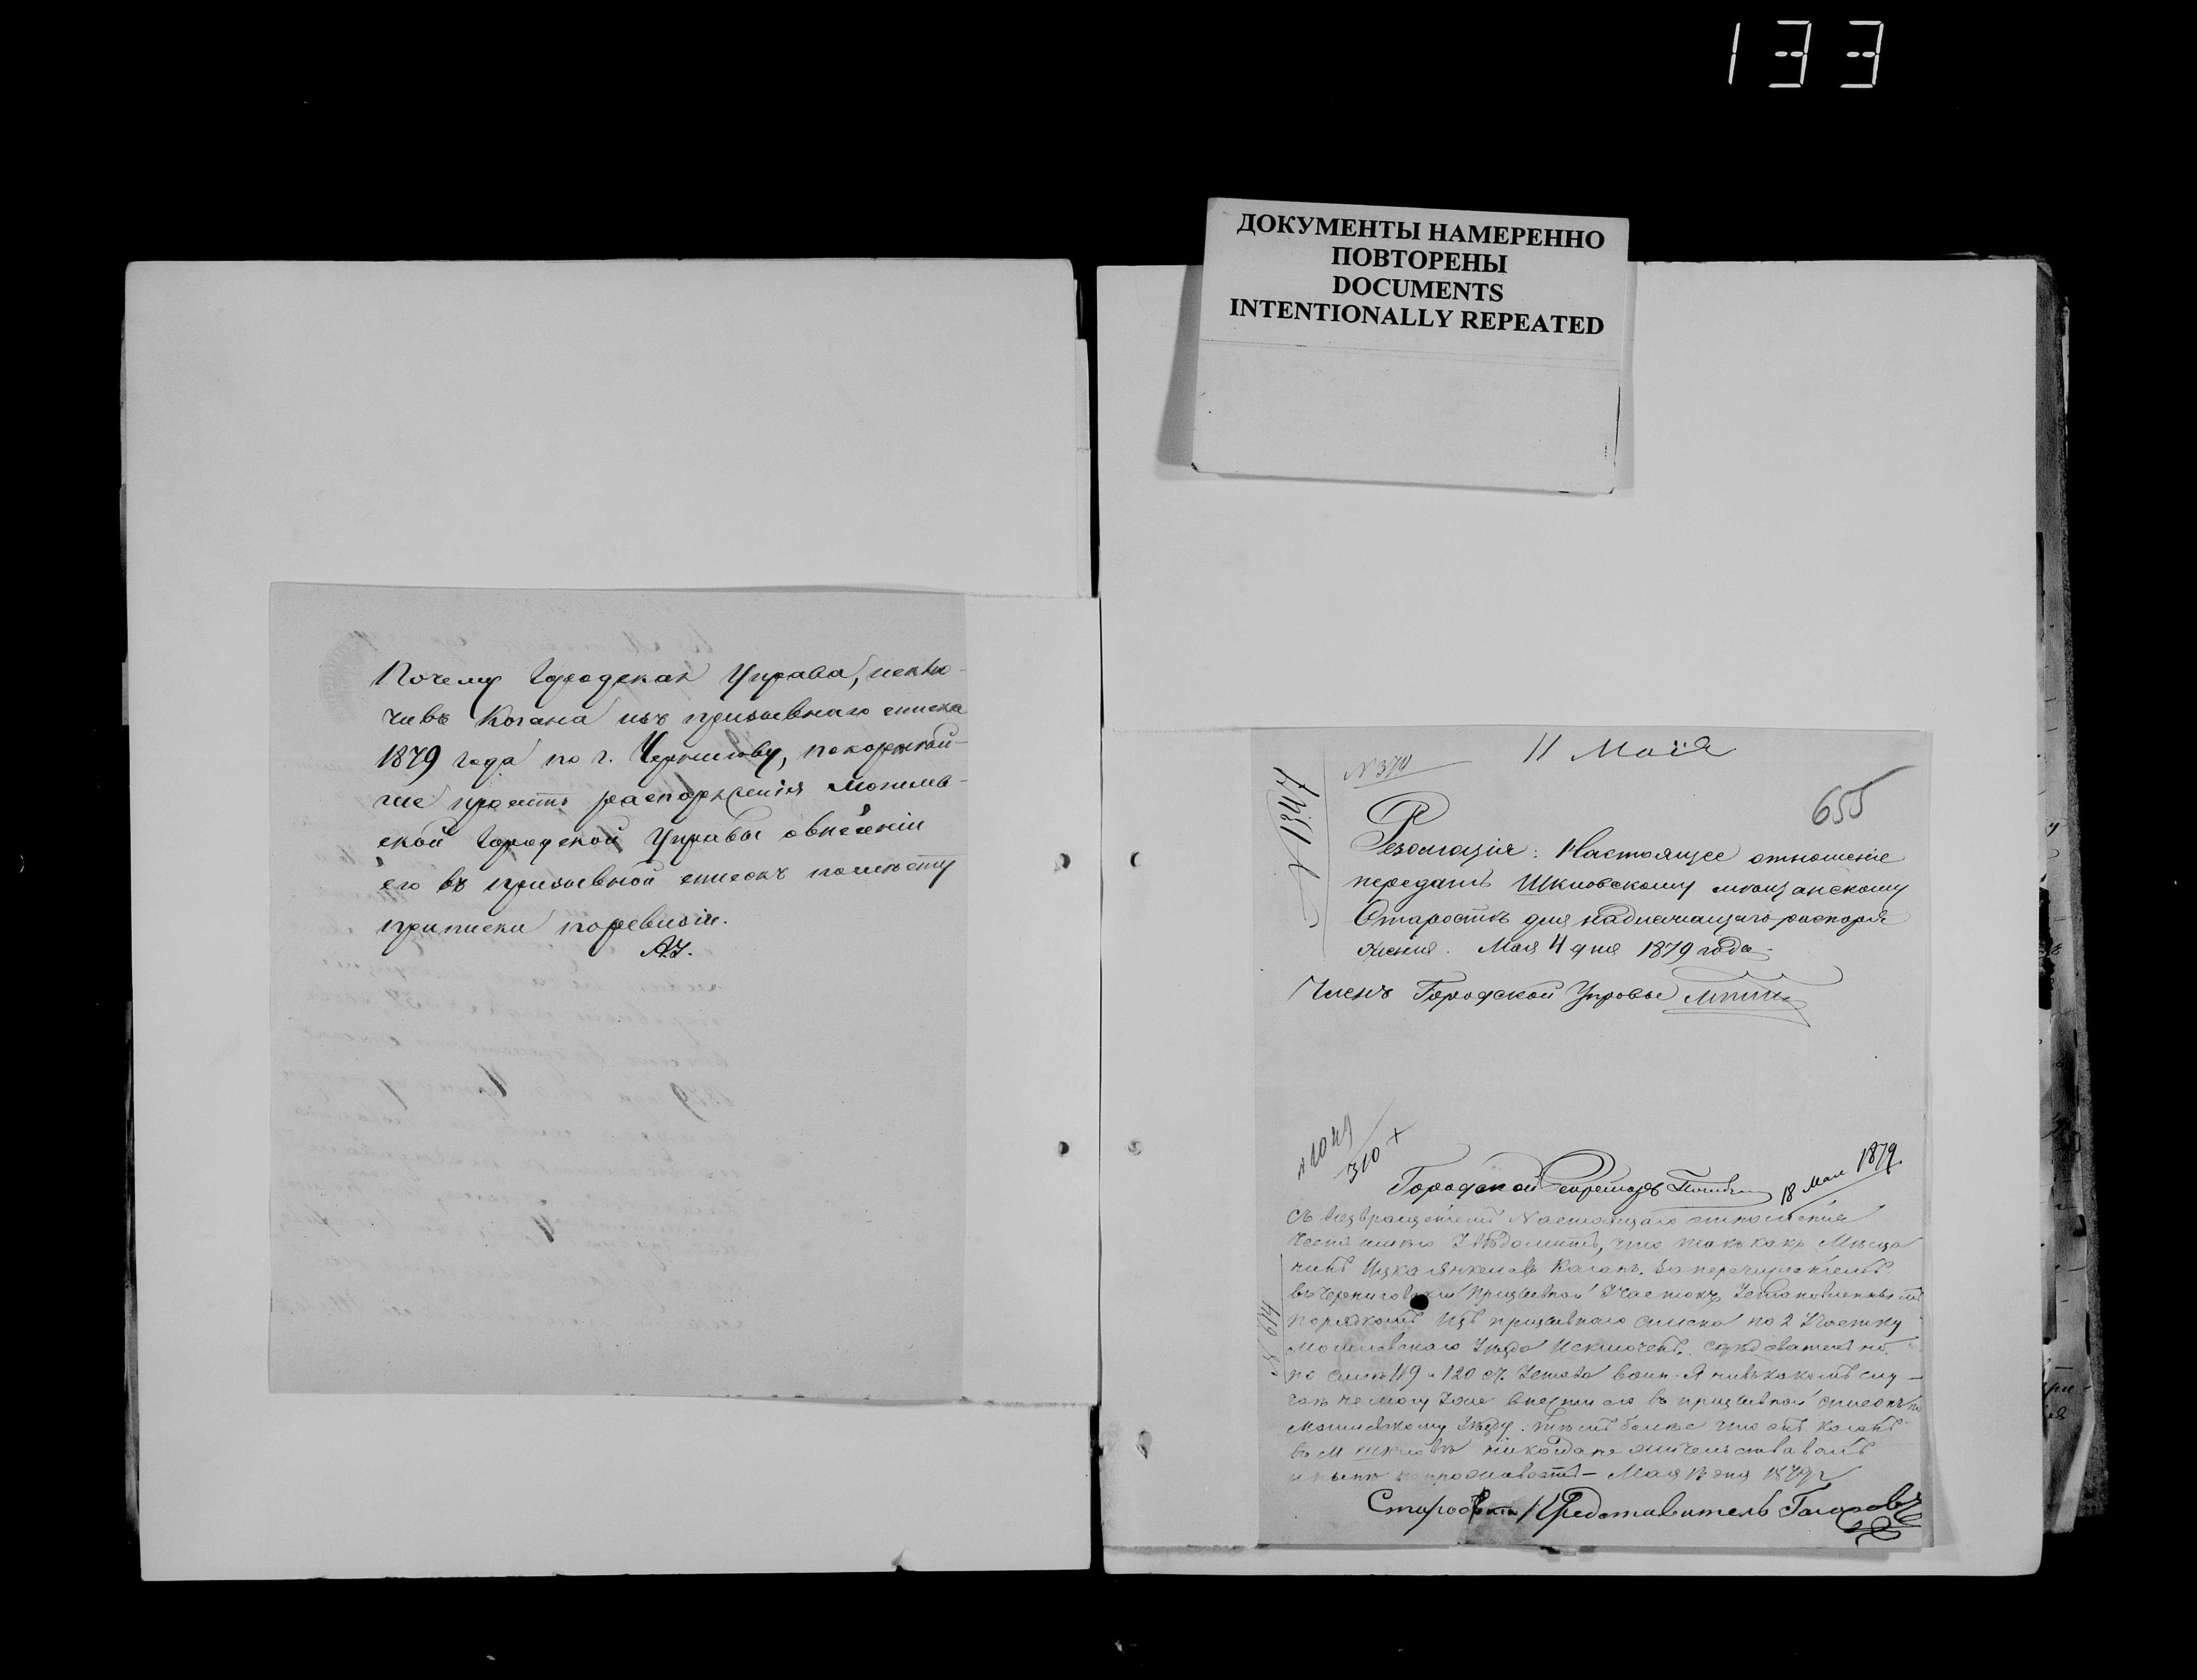 133
ДОКУМЕНТЫ НАМЕРЕННО
ПОВТОРЕНЫ
DOCUMENTS
INTENTIONALLY REPEATED
Почему Городская Управа, исклю-
чивъ Когана изъ призывнаго списка
1879 года по г. Чернигову, покорнѣй-
ше проситъ распоряженія Могилев-
ской Городской Управы овнесеніи
его въ призывной списокъ помѣсту
приписки поревизіи.
11 Мая
655
Резолюція: Настоящее отношеніе
передать Шкловскому мѣщанскому
Старостѣ для надлежащаго распоря
женія. Мая 4 дня 1879 года
Членъ Городской Управы
№ 1049
310
Городской Секретарь 18 Мая 1879
Съ возвращеніемъ Настоящаго отношенія
честь имѣю Увѣдомить, что такъ какъ Мѣща
нинъ Ицка Янкелевъ Каганъ, за перечисленіемъ
въ Черниговскій Призывной Участокъ Установленнымъ
порядкомъ Изъ призывнаго списка по 2 Участку
Могилевскаго Уѣзда Исключенъ. Слѣдовательно
по силѣ 119 и 120 ст. Устава воин. Я ни въ какомъ слу-
чаѣ не могу Уже внести его въ призывной списокъ по
Могилевскому Уѣзду. Тѣмъ болѣе что онъ Каганъ
въ М Шкловѣ никогда не жительствовалъ
и нынѣ не проживаетъ - Мая дня 1879 г
Староста Представитель